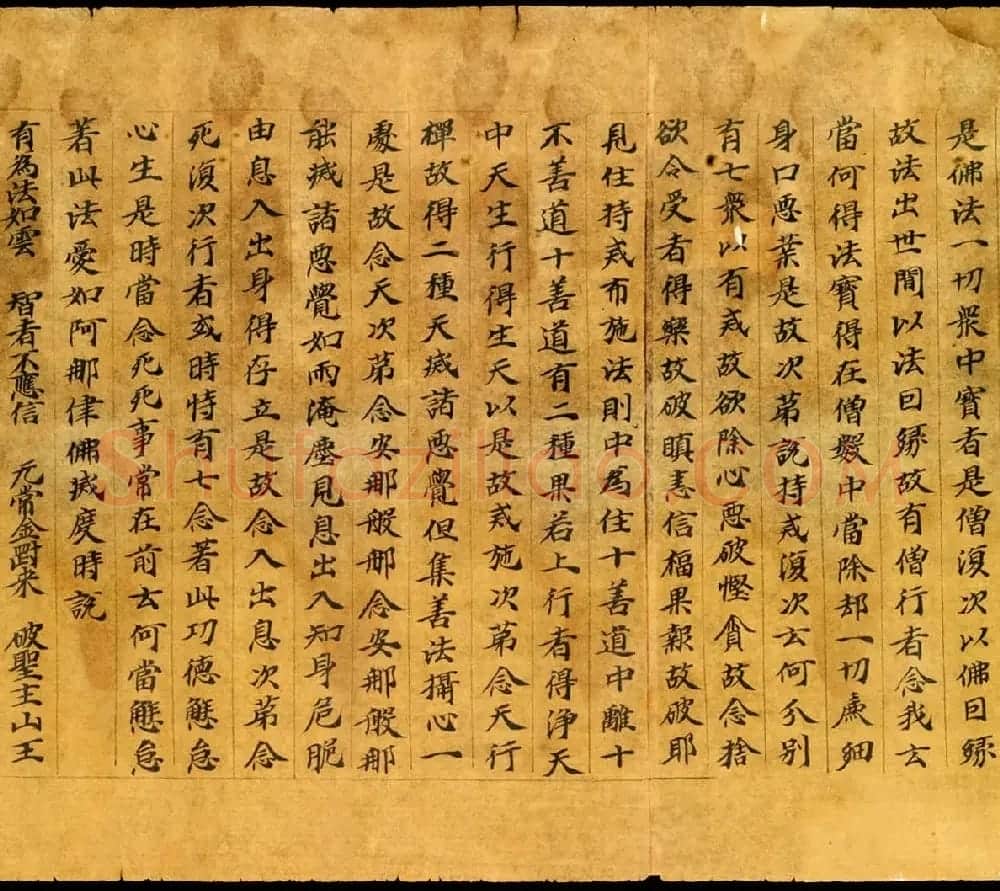 是佛法一切衆中寳者是僧復次以佛因縁
故法出世間以法因縁故有僧行者念我云
當何得法寳得在僧數中當除却一切麁細
身口惡業是故次第說持戒復次云何分别
有七衆以有戒故欲除心惡破慳貪故念捨
欲令受者得樂故破瞋恚信福果報故破耶
見住持戒布施法則中為住十善道中離十
不善道十善道有二種果若上行者得淨天
中天生行得生天以是故戒施次第念天行
禪故得二種天滅諸惡覺但集善法攝心一
處是故念天次第念安那般那念安那般那
能滅諸惡覺如雨淹塵見息出入知身危脆
由息入出身得存立是故念入出息次第念
死復次行者或時恃有七念著此功德懈怠
心生是時當念死死事常在前云何當懈怠
著此法愛如阿那律佛滅度時說
有為法如雲　智者不應信　无常金剛来　破聖主山王
Shufaziliao.COM